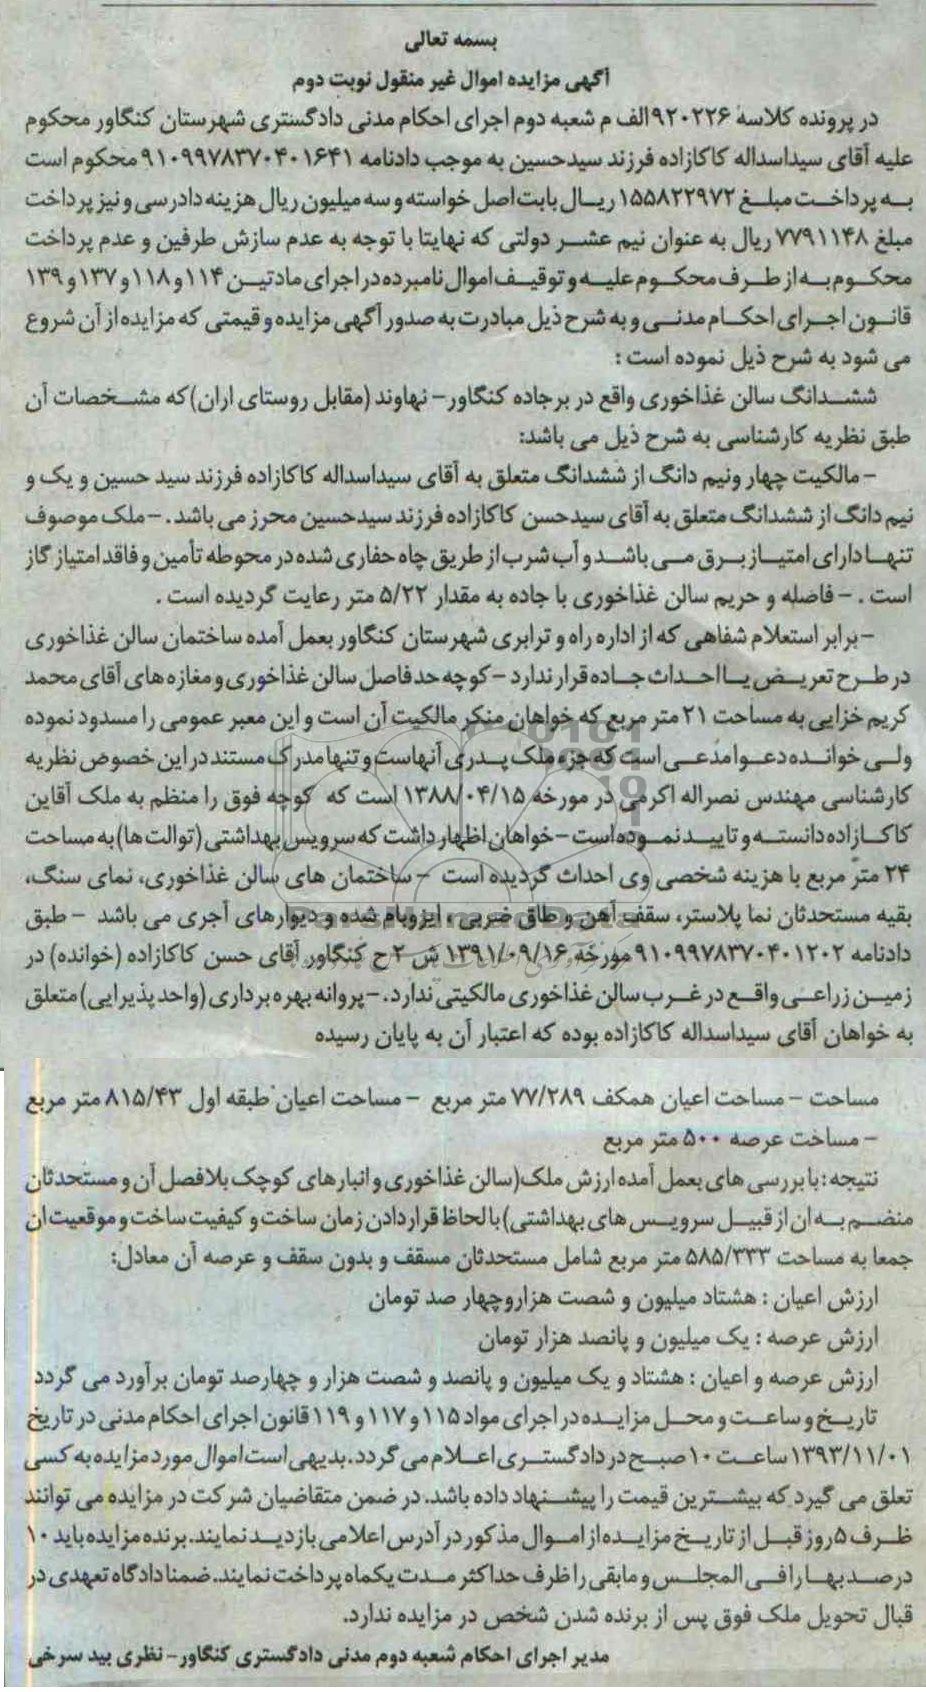 بسمه تعالی
آگهی مزایده اموال غیر منقول نوبت دوم
در پرونده کلاسه ۹۲۰۲۲۶الف م شعبه دوم اجرای احکام مدنی دادگستری شهرستان کنگاور محکوم
علیه آقای سیداسداله کاکازاده فرزند سیدحسین به موجب دادنامه ۹۱۰۹۹۷۸۳۷۰۴۰۱۶۴۱ محکوم است
به پرداخت مبلغ ۱۵۵۸۲۲۹۷۲ ریال بابت اصل خواسته و سه میلیون ریال هزینه دادرسی و نیز پرداخت
مبلغ ۷۷۹۱۱۴۸ ریال به عنوان نیم عشر دولتی که نهایتا با توجه به عدم سازش طرفین و عدم پرداخت
محکوم به از طرف محکوم علیه و توقیف اموال نامبرده در اجرای مادتین ۱۱۴ و ۱۱۸ و ۱۳۷ و ۱۳۹
قانون اجرای احکام مدنی و به شرح ذیل مبادرت به صدور آگهی مزایده و قیمتی که مزایده از آن شروع
می شود به شرح ذیل نموده است :
ششدانگ سالن غذاخوری واقع در برجاده کنگاور- نهاوند (مقابل روستای اران) که مشخصات آن
طبق نظریه کارشناسی به شرح ذیل می باشد:
- مالکیت چهار ونیم دانگ از ششدانگ متعلق به آقای سیداسداله کاکازاده فرزند سید حسین و یک و
نیم دانگ از ششدانگ متعلق به آقای سیدحسن کاکازاده فرزند سیدحسین محرز می باشد. - ملک موصوف
تنها دارای امتیاز برق می باشد و آب شرب از طریق چاه حفاری شده در محوطه تأمین و فاقد امتیاز گاز
است . - فاصله و حریم سالن غذاخوری با جاده به مقدار ۵/۲۲ متر رعایت گردیده است .
- برابر استعلام شفاهی که از اداره راه و ترابری شهرستان کنگاور بعمل آمده ساختمان سالن غذاخوری
در طرح تعریض یا احداث جاده قرار ندارد - کوچه حد فاصل سالن غذاخوری و مغازه های آقای محمد
کریم خزایی به مساحت ۲۱ متر مربع که خواهان منکر مالکیت آن است و این معبر عمومی را مسدود نموده
ولی خوانده دعوا مدعی است که جزء ملک پدری آنهاست و تنها مدرک مستند در این خصوص نظریه
کارشناسی مهندس نصراله اکرمی در مورخه ۱۳۸۸/۰۴/۱۵ است که کوچه فوق را منظم به ملک آقاین
کاکازاده دانسته و تایید نموده است - خواهان اظهار داشت که سرویس بهداشتی (توالت ها) به مساحت
۲۴ متر مربع با هزینه شخصی وی احداث گردیده است - ساختمان های سالن غذاخوری، نمای سنگ،
بقیه مستحدثان نما پلاستر، سقف آهن و طاق ضربی ، ایزوبام شده و دیوارهای آجری می باشد - طبق
دادنامه ۹۱۰۹۹۷۸۳۷۰۴۰۱۲۰۲ مورخه ۱۳۹۱/۰۹/۱۶ ش ۲ ح کنگاور آقای حسن کاکازاده (خوانده) در
زمین زراعی واقع در غرب سالن غذاخوری مالکیتی ندارد. - پروانه بهره برداری (واحد پذیرایی) متعلق
به خواهان آقای سیداسداله کاکازاده بوده که اعتبار آن به پایان رسیده
مساحت - مساحت اعیان همکف ۷۷/۲۸۹ متر مربع - مساحت اعیان طبقه اول ۸۱۵/۴۳ متر مربع
- مساخت عرصه ۵۰۰ متر مربع
نتیجه : با بررسی های بعمل آمده ارزش ملک (سالن غذاخوری و انبارهای کوچک بلافصل آن و مستحدثان
منضم به ان از قبیل سرویس های بهداشتی) با لحاظ قرار دادن زمان ساخت و کیفیت ساخت و موقعیت ان
جمعا به مساحت ۵۸۵/۳۳۳ متر مربع شامل مستحدثان مسقف و بدون سقف و عرصه آن معادل:
ارزش اعیان : هشتاد میلیون و شصت هزاروچهار صد تومان
ارزش عرصه : یک میلیون و پانصد هزار تومان
ارزش عرصه و اعیان : هشتاد و یک میلیون و پانصد و شصت هزار و چهارصد تومان برآورد می گردد
تاریخ و ساعت و محل مزایده در اجرای مواد ۱۱۵ و ۱۱۷ و ۱۱۹ قانون اجرای احکام مدنی در تاریخ
۱۳۹۳/۱۱/۰۱ ساعت ۱۰ صبح در دادگستری اعلام می گردد. بدیهی است اموال مورد مزایده به کسی
تعلق می گیرد که بیشترین قیمت را پیشنهاد داده باشد. در ضمن متقاضیان شرکت در مزایده می توانند
ظرف ۵ روز قبل از تاریخ مزایده از اموال مذکور در آدرس اعلامی بازدید نمایند. برنده مزایده باید ۱۰
درصد بها را فی المجلس و مابقی را ظرف حداکثر مدت یکماه پرداخت نمایند. ضمنا دادگاه تعهدی در
قبال تحویل ملک فوق پس از برنده شدن شخص در مزایده ندارد.
مدیر اجرای احکام شعبه دوم مدنی دادگستری کنگاور- نظری بید سرخی